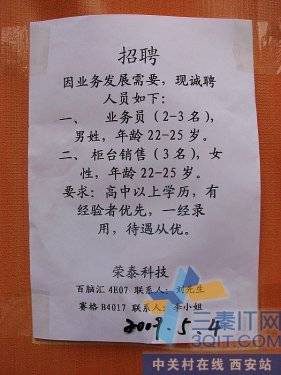 招聘
因业务发展需要，现诚聘
人员如下：
一、 业务员（2-3名），
男姓，年龄22-25岁。
二、柜台销售（3名），女
性，年龄22-25岁。
要求：高中以上学历，有
经验者优先，一经录
用，待遇从优。
荣泰科技
百脑汇 4E07 联系人：刘先生
赛格 B4017 联系人：李小姐
2009.5.4
三秦IT网
3QIT.COM
中关村在线 西安站